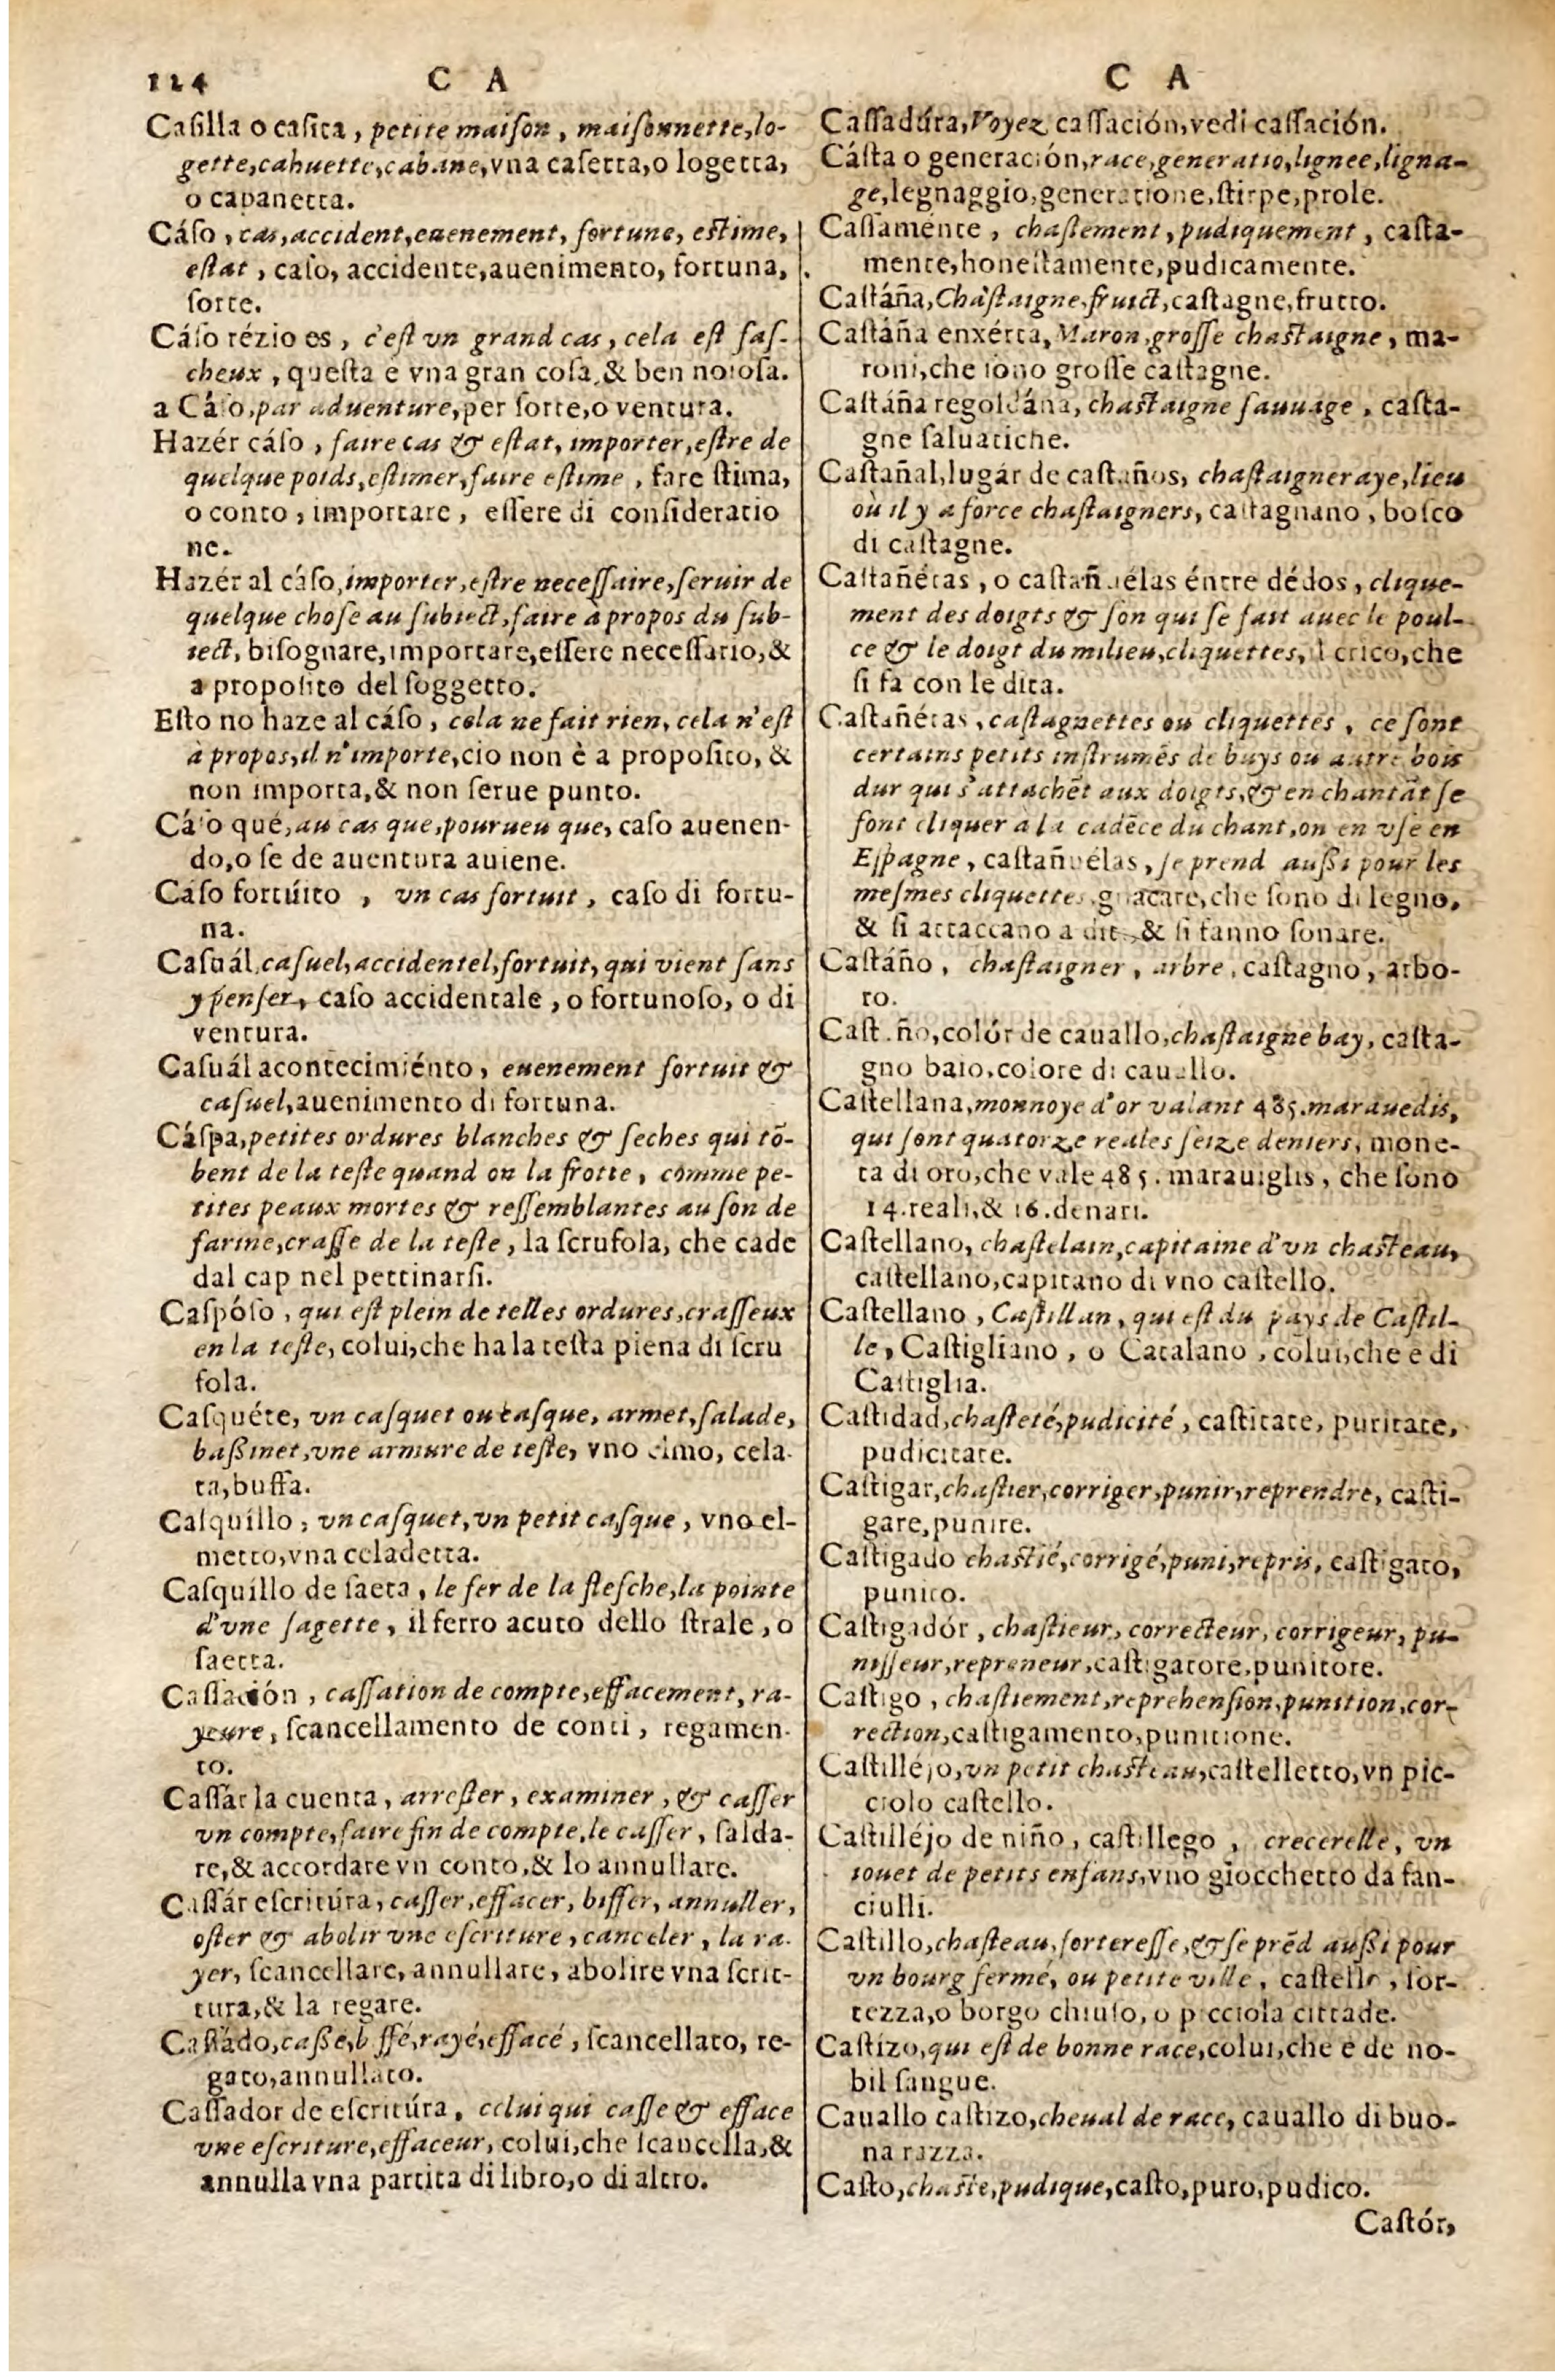 124 C A
Caſilla o caſita, petite maiſon, maiſonnette, lo-
gette, cahuette, cabane, vna caſetta, o logetta,
o capanetta.
Cáſo, cas, accident, euenement, fortune, eſtime,
eſtat, caſo, accidente, auenimento, fortuna,
ſorte.
Cáſo rézio es, c'eſt vn grand cas, cela eſt faſ-
cheux, queſta e vna gran coſa, & ben noioſa.
a Cáſo, par aduenture, per ſorte, o ventura.
Hazér cáſo, faire cas & eſtat, importer, eſtre de
quelque poids, eſtimer, faire eſtime, fare ſtima,
o conto, importare, eſſere di conſideratio
ne.
Hazér al cáſo, importer, eſtre neceſſaire, ſeruir de
quelque choſe au ſubiect, faire à propos du ſub-
iect, biſognare, importare, eſſere neceſſario, &
a propoſito del ſoggetto.
Eſto no haze al cáſo, cela ne fait rien, cela n'eſt
à propos, il n'importe, cio non è a propoſito, &
non importa, & non ſerue punto.
Cáſo qué, au cas que, pourueu que, caſo auenen-
do, o ſe de auentura auiene.
Cáſo fortúito, vn cas fortuit, caſo di fortu-
na.
Caſuál, caſuel, accidentel, fortuit, qui vient ſans
y penſer, caſo accidentale, o fortunoſo, o di
ventura.
Caſuál acontecimiénto, euenement fortuit &
caſuel, auenimento di fortuna.
Cáſpa, petites ordures blanches & ſeches qui tō-
bent de la teſte quand on la frotte, comme pe-
tites peaux mortes & reſſemblantes au ſon de
farine, craſſe de la teſte, la ſcrufola, che cade
dal cap nel pettinarſi.
Caſpóſo, qui eſt plein de telles ordures, craſſeux
en la teſte, colui, che ha la teſta piena di ſcru
fola.
Caſquéte, vn caſquet ou caſque, armet, ſalade,
baßinet, vne armure de teſte, vno elmo, cela-
ta, buffa.
Caſquíllo, vn caſquet, vn petit caſque, vno el-
metto, vna celadetta.
Caſquíllo de ſaeta, le fer de la fleſche, la pointe
d'vne ſagette, il ferro acuto dello ſtrale, o
ſaetta.
Caſſación, caſſation de compte, effacement, ra-
yeure, ſcancellamento de conti, regamen-
to.
Caſſar la cuenta, arreſter, examiner, & caſſer
vn compte, faire fin de compte, le caſſer, ſalda-
re, & accordare vn conto, & lo annullare.
Caſſár eſcritúra, caſſer, effacer, biffer, annuller,
oſter & abolir vne eſcriture, canceler, la ra-
yer, ſcancellare, annullare, abolire vna ſcrit-
tura, & la regare.
Caſſádo, caßé, biffé, rayé, effacé, ſcancellato, re-
gato, annullato.
Caſſador de eſcritúra, celui qui caſſe & efface
vne eſcriture, effaceur, colui, che ſcancella, &
annulla vna partita di libro, o di altro.
C A
Caſſadúra, Voyez caſſación, vedi caſſación.
Cáſta o generación, race, generatio, lignee, ligna-
ge, legnaggio, generatione, ſtirpe, prole.
Caſtaménte, chaſtement, pudiquement, caſta-
mente, honeſtamente, pudicamente.
Caſtáña, Chaſtaigne, fruict, caſtagne, frutto.
Caſtáña enxérta, Maron, groſſe chaſtaigne, ma-
roni, che ſono groſſe caſtagne.
Caſtáña regoldána, chaſtaigne ſauuage, caſta-
gne ſaluatiche.
Caſtañal, lugár de caſtaños, chaſtaigneraye, lieu
où il y a force chaſtaigners, caſtagnano, boſco
di caſtagne.
Caſtañétas, o caſtañuélas éntre dédos, clique-
ment des doigts & ſon qui ſe fait auec le poul-
ce & le doigt du milieu, cliquettes, crico, che
ſi fa con le dita.
Caſtañétas, caſtagnettes ou cliquettes, ce ſont
certains petits inſtrumēs de buys ou autre bois
dur qui s'attachēt aux doigts, & en chantāt ſe
font cliquer a la cadēce du chant, on en vſe en
Eſpagne, caſtañuélas, ſe prend außi pour les
meſmes cliquettes, gnacare, che ſono di legno,
& ſi attaccano a dit & ſi fanno ſonare.
Caſtáño, chaſtaigner, arbre, caſtagno, arbo-
ro.
Caſtaño, colór de cauallo, chaſtaigne bay, caſta-
gno baio, colore di cauallo.
Caſtellana, monnoye d'or valant 485. marauedis,
qui ſont quatorze reales ſeize deniers, mone-
ta di oro, che vale 485. marauiglis, che ſono
14. reali, & 16. denari.
Caſtellano, chaſtelain, capitaine d'vn chaſteau,
caſtellano, capitano di vno caſtello.
Caſtellano, Caſtillan, qui eſt du pays de Caſtil-
le, Caſtigliano, o Catalano, colui, che è di
Caſtiglia.
Caſtidad, chaſteté, pudicité, caſtitate, puritate,
pudicitate.
Caſtigar, chaſtier, corriger, punir, reprendre, caſti-
gare, punire.
Caſtigado chaſtié, corrigé, puni, repris, caſtigato,
punito.
Caſtigadór, chaſtieur, correcteur, corrigeur, pu-
niſſeur, repreneur, caſtigatore, punitore.
Caſtigo, chaſtiement, reprehenſion, punition, cor-
rection, caſtigamento, punitione.
Caſtilléjo, vn petit chaſteau, caſtelletto, vn pic-
ciolo caſtello.
Caſtilléjo de niño, caſtillego, crecerelle, vn
iouet de petits enfans, vno giocchetto da fan-
ciulli.
Caſtillo, chaſteau, fortereſſe, & ſe prēd außi pour
vn bourg fermé, ou petite ville, caſtello, for-
tezza, o borgo chiuſo, o picciola cittade.
Caſtízo, qui eſt de bonne race, colui, che è de no-
bil ſangue.
Cauallo caſtizo, cheual de race, cauallo di buo-
na razza.
Caſto, chaſte, pudique, caſto, puro, pudico.
Caſtór,